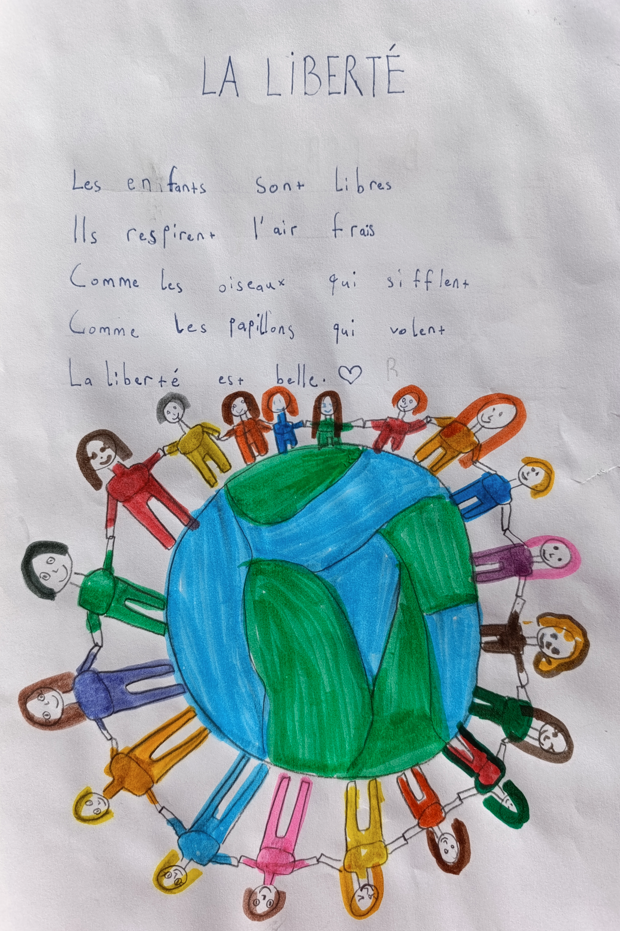 LA LiBERTÉ
Les enfants sont libres
Ils respirent l'air frais
Comme les oiseaux qui sifflent
Comme les papillons qui volent
La liberté est belle. ♡ R